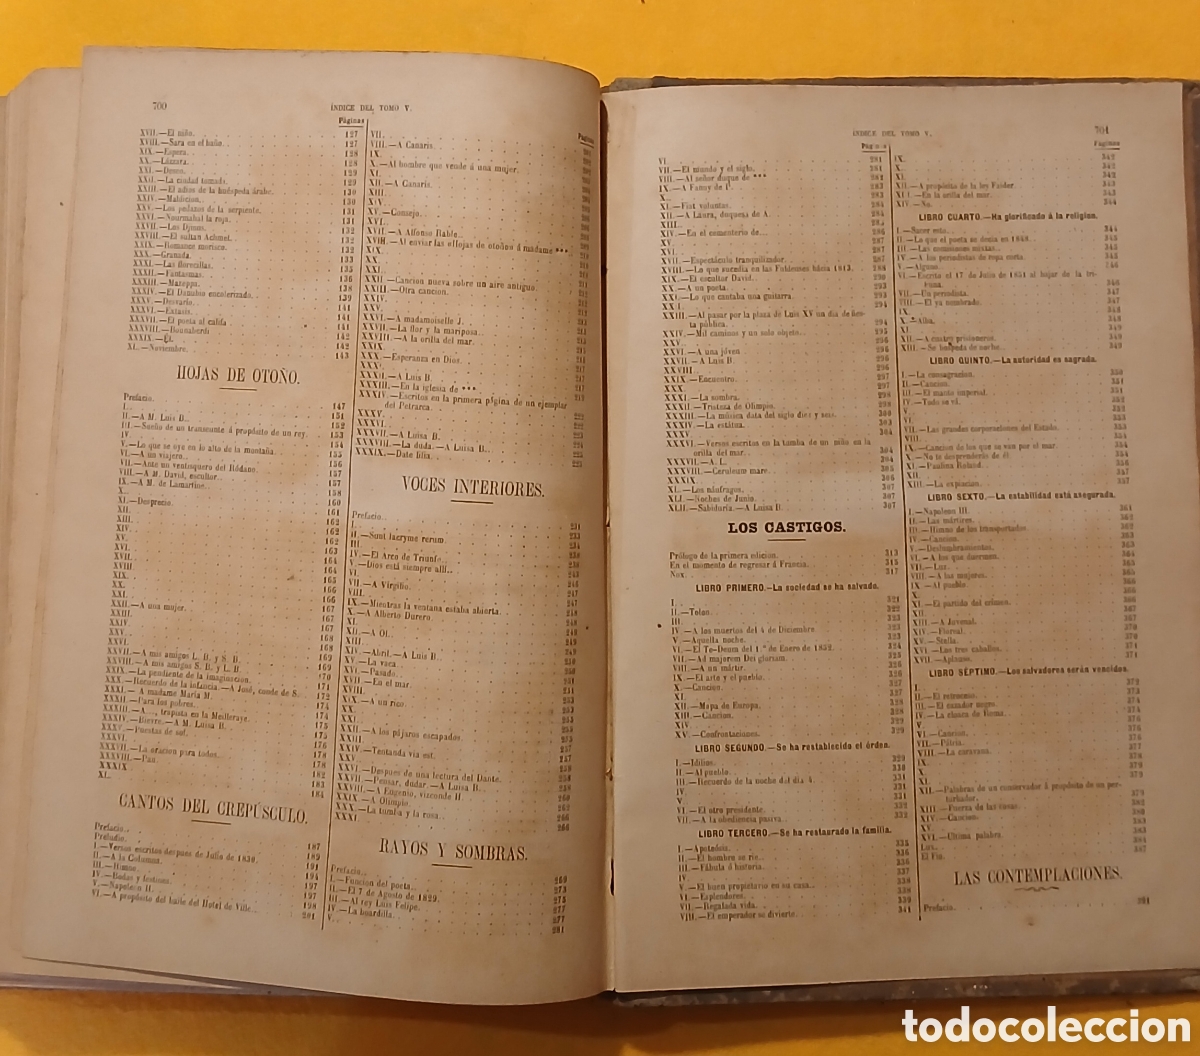 700
ÍNDICE DEL TOMO V.
Páginas
XVII.—El niño. 127
XVIII.—Sara en el baño. 127
XIX.—Espera. 128
XX.—Lázzara. 128
XXI.—Deseo. 129
XXII.—La ciudad tomada. 129
XXIII.—El adios de la huéspeda árabe. 130
XXIV.—Maldicion. 130
XXV.—Los pedazos de la serpiente. 131
XXVI.—Nourmahal la roja. 131
XXVII.—Los Djinns. 132
XXVIII.—El sultan Achmet. 132
XXIX.—Romance morisco. 132
XXX.—Granada. 133
XXXI.—Las florecillas. 135
XXXII.—Fantasmas. 135
XXXIII.—Mazeppa. 136
XXXIV.—El Danubio encolerizado. 138
XXXV.—Desvarío. 139
XXXVI.—Éxtasis. 141
XXXVII.—El poeta al califa 141
XXXVIII.—Bounaberdi 141
XXXIX.—Él. 142
XL.—Noviembre. 142
143
HOJAS DE OTOÑO.
Prefacio. 147
I. 151
II.—A M. Luis B. 152
III.—Sueño de un transeunte á propósito de un rey. 153
IV. 154
V.—Lo que se oye en lo alto de la montaña. 155
VI.—A un viajero. 156
VII.—Ante un ventisquero del Ródano. 157
VIII.—A M. David, escultor. 157
IX.—A M. de Lamartine. 158
X. 160
XI.—Desprecio. 161
XII. 162
XIII. 162
XIV. 162
XV. 163
XVI. 164
XVII. 164
XVIII 165
XIX. 166
XX. 166
XXI. 167
XXII.—A una mujer. 167
XXIII. 167
XXIV. 168
XXV. 168
XXVI. 169
XXVII.—A mis amigos L. B. y S. B. 169
XXVIII.—A mis amigos S. B. y L. B. 170
XXIX.—La pendiente de la imaginacion. 171
XXX.—Recuerdo de la infancia.—A José, conde de S. 172
XXXI.—A madame María M. 174
XXXII.—Para los pobres. 174
XXXIII.—A..., trapista en la Meilleraye. 175
XXXIV.—Bievre.—A M. Luisa B. 175
XXXV.—Puestas de sol. 176
XXXVI. 178
XXXVII.—La oracion para todos. 178
XXXVIII.—Pan. 182
XXXIX 183
XL. 184
CANTOS DEL CREPÚSCULO.
Prefacio. 187
Preludio. 189
I.—Versos escritos despues de Julio de 1830. 191
II.—A la Columna. 194
III.—Himno. 197
IV.—Bodas y festines. 197
V.—Napoleon II. 198
VI.—A propósito del baile del Hotel de Ville. 201
Páginas
VII.
VIII.—A Canaris.
IX.
X.—Al hombre que vende á una mujer.
XI.
XII.—A Canaris.
XIII.
XIV.
XV.—Consejo.
XVI.
XVII.—A Alfonso Rabbe.
XVIII.—Al enviar las «Hojas de otoño» á madame ***
XIX.
XX.
XXI.
XXII.—Cancion nueva sobre un aire antiguo.
XXIII.—Otra cancion.
XXIV.
XXV.
XXVI.—A mademoiselle J.
XXVII.—La flor y la mariposa.
XXVIII.—A la orilla del mar.
XXIX.
XXX.—Esperanza en Dios.
XXXI.
XXXII.—A Luis B.
XXXIII.—En la iglesia de ***
XXXIV.—Escritos en la primera página de un ejemplar
del Petrarca.
XXXV.
XXXVI.
XXXVII.—A Luisa B.
XXXVIII.—La duda.—A Luisa B.
XXXIX.—Date lilia.
VOCES INTERIORES.
Prefacio. 231
I. 233
II.—Sunt lacryme rerum. 234
III. 238
IV.—El Arco de Triunfo
V.—Dios está siempre allí.
VI. 246
VII.—A Virgilio. 247
VIII. 247
IX.—Mientras la ventana estaba abierta. 248
X.—A Alberto Durero. 248
XI. 249
XII.—A Ol.
XIII.
XIV.—Abril.—A Luis B.
XV.—La vaca.
XVI.—Pasado.
XVII.—En el mar. 251
XVIII.
XIX.—A un rico.
XX.
XXI. 255
XXII.—A los pájaros escapados.
XXIII. 257
XXIV.—Tentanda via est. 257
XXV.
XXVI.—Despues de una lectura del Dante. 258
XXVII.—Pensar, dudar.—A Luisa B.
XXVIII.—A Eugenio, vizconde H. 260
XXIX.—A Olimpio. 262
XXX.—La tumba y la rosa. 266
XXXI 266
RAYOS Y SOMBRAS.
Prefacio. 269
I.—Funcion del poeta. 273
II.—El 7 de Agosto de 1829. 275
III.—Al rey Luis Felipe. 277
IV.—La boardilla. 277
V. 281
ÍNDICE DEL TOMO V.
701
Páginas
VI. 281
VII.—El mundo y el siglo. 282
VIII.—Al señor duque de *** 283
IX.—A Fanny de P. 283
X. 284
XI.—Fiat voluntas. 284
XII.—A Laura, duquesa de A. 285
XIII.
XIV.—En el cementerio de... 286
XV. 287
XVI. 287
XVII.—Espectáculo tranquilizador. 288
XVIII.—Lo que sucedia en las Fobleones hácia 1813. 289
XIX.—El escultor David. 290
XX.—A un poeta. 293
XXI.—Lo que cantaba una guitarra. 293
XXII. 294
XXIII.—Al pasar por la plaza de Luis XV un dia de fiesta
pública. 294
XXIV.—Mil caminos y un solo objeto. 295
XXV. 296
XXVI.—A una jóven 296
XXVII.—A Luis B. 296
XXVIII. 297
XXIX.—Encuentro. 297
XXX. 297
XXXI.—La sombra. 298
XXXII.—Tristeza de Olimpio. 298
XXXIII.—La música data del siglo diez y seis. 300
XXXIV.—La estátua. 303
XXXV. 304
XXXVI.—Versos escritos en la tumba de un niño en la
orilla del mar. 304
XXXVII.—A. L. 304
XXXVIII.—Ceruleum mare. 305
XXXIX. 306
XL.—Los náufragos. 307
XLI.—Noches de Junio. 307
XLII.—Sabiduría.—A Luisa B. 307
LOS CASTIGOS.
Prólogo de la primera edicion. 313
En el momento de regresar á Francia. 315
Nox. 317
LIBRO PRIMERO.—La sociedad se ha salvado.
I. 321
II.—Tolon. 322
III. 323
IV.—A los muertos del 4 de Diciembre. 323
V.—Aquella noche. 324
VI.—El Te-Deum del 1.º de Enero de 1852. 325
VII.—Ad majorem Dei gloriam. 325
VIII.—A un mártir. 326
IX.—El arte y el pueblo. 327
X.—Cancion. 327
XI. 327
XII.—Mapa de Europa. 328
XIII.—Cancion. 328
XIV. 329
XV.—Confrontaciones. 329
LIBRO SEGUNDO.—Se ha restablecido el órden.
I.—Idilios. 329
II.—Al pueblo. 330
III.—Recuerdo de la noche del dia 4. 331
IV. 331
V. 331
VI.—El otro presidente. 332
VII.—A la obediencia pasiva. 332
LIBRO TERCERO.—Se ha restaurado la familia.
I.—Apoteósis. 335
II.—El hombre se rie. 336
III.—Fábula ó historia. 336
IV. 337
V.—El buen propietario en su casa. 338
VI.—Esplendores. 338
VII.—Regalada vida. 339
VIII.—El emperador se divierte. 341
Páginas
IX. 342
X. 342
XI. 343
XII.—A propósito de la ley Faider. 343
XIII.—En la orilla del mar. 343
XIV.—No. 344
LIBRO CUARTO.—Ha glorificado á la religion.
I.—Sacer esto. 344
II.—Lo que el poeta se decia en 1848. 345
III.—Las comisiones mixtas. 345
IV.—A los periodistas de ropa corta. 345
V.—Alguno. 346
VI.—Escrito el 17 de Julio de 1851 al bajar de la tribuna.
346
VII.—Un periodista. 347
VIII.—El ya nombrado. 347
IX. 348
X.—Alba. 348
XI. 349
XII.—A cuatro prisioneros. 349
XIII.—Se hospeda de noche. 349
LIBRO QUINTO.—La autoridad es sagrada.
I.—La consagracion. 350
II.—Cancion. 351
III.—El manto imperial. 351
IV.—Todo se vá. 352
V.
VI.
VII.—Las grandes corporaciones del Estado. 353
VIII. 354
IX.—Cancion de los que se van por el mar. 354
X.—No la desprendereis de él. 354
XI.—Paulina Roland. 355
XII. 357
XIII.—La expiacion. 357
LIBRO SEXTO.—La estabilidad está asegurada.
I.—Napoleon III. 361
II.—Las mártires. 362
III.—Himno de los transportados. 362
IV.—Cancion. 363
V.—Deslumbramientos. 363
VI.—A los que duermen. 365
VII.—Lux. 365
VIII.—A las mujeres. 365
IX.—Al pueblo. 366
X. 366
XI.—El partido del crímen. 366
XII. 367
XIII.—A Juvenal. 367
XIV.—Floreal. 370
XV.—Stella. 370
XVI.—Los tres caballos. 371
XVII.—Aplauso. 371
LIBRO SÉPTIMO.—Los salvadores serán vencidos.
I. 372
II.—El retroceso. 373
III.—El cazador negro. 374
IV.—La cloaca de Roma. 374
V. 375
VI.—Cancion. 376
VII.—Pátria. 377
VIII.—La caravana. 377
IX. 378
X. 378
XI. 379
XII.—Palabras de un conservador á propósito de un perturbador.
379
XIII.—Fuerza de las cosas. 380
XIV.—Cancion. 382
XV. 383
XVI.—Última palabra. 383
Lux. 384
El Fin. 387
LAS CONTEMPLACIONES.
Prefacio. 391
todocoleccion
todocoleccion.net